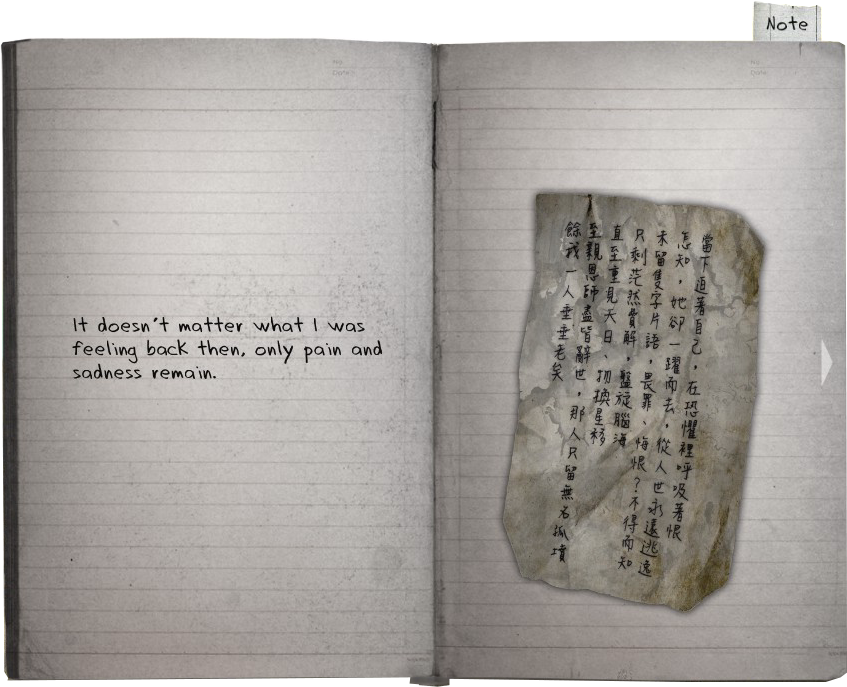 Note
No.
Date
No.
Date
It doesn't matter what I was
feeling back then, only pain and
sadness remain.
當下迫著自己，在恐懼裡呼吸著恨
怎知，她卻一躍而去，從人世永遠逃逸
未留隻字片語，畏罪、悔恨？不得而知
只剩茫然費解，盤旋腦海
直至重見天日、物換星移
至親恩師盡皆辭世，那人只留無名孤墳
餘我一人垂垂老矣